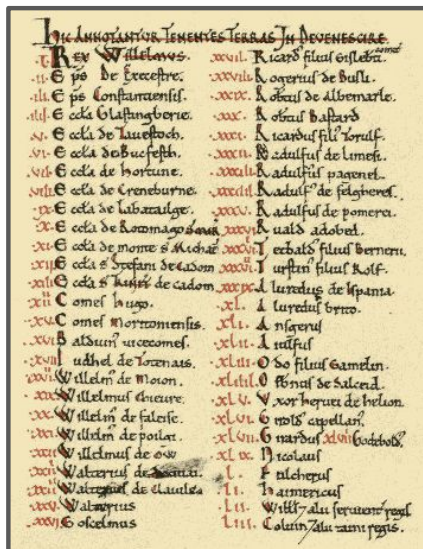 HIC ANNOTANTUR TENENTES TERRAS IN DEVENESCIRE.
.I. REX WILLELMUS
.II. Eps De Execestre.
.III. Eps Constantiensis.
.IIII. Eccla Glastingberie.
.V. Eccla de Tavestoch.
.VI. Eccla de Bucfesth.
.VII. Eccla de Hortune.
.VIII. Eccla de Creneburne.
.IX. Eccla de Labatailge.
.X. Eccla de Rotomago
.XI. Eccla de monte s Michael
.XII. Eccla s Stefani de cadom
.XIII. Eccla s de cadom
Comes hugo.
.XV. Comes Moritoniensis.
.XVI. Balduin' vicecomes.
.XVII. Iudhel de Totenais.
Willelm' de Moion.
.XIX. Willelmus Chievre.
.XX. Willelm' de faleise.
.XXI. Willelm' de poilgi.
Willelmus de Ow
.XXIII. Walterius de
Walterius de Clavile
.XXV. Walterius
.XXVI. Goscelmus
.XXVII. Ricard' filius Gisleb'ti. comes'
.XXVIII. Rogerius de Busli.
.XXIX. Rotbtus de Albemarle.
.XXX. Rotbtus Bastard
.XXXI. Ricardus fili' Torulf.
.XXXII. Radulfus de limesi.
.XXXIII. Radulfus pagenel.
.XXXIIII. Radulf' de felgheres.
.XXXV. Radulfus de pomerei.
.XXXVI. Ruald adobed.
Tetbald' filius Bernerii.
Turstin' filius Rolf.
.XXXIX. Aluredus de Ispania.
.XL. Aluredus brito.
.XLI. Ansgerus
.XLII. Aiulfus
.XLIII. Odo filius Gamelin.
.XLIIII. Osbnus de Salceid.
.XLV. Uxor hervei de helion.
.XLVI. Girold' capellan'.
Girardus XLVIII Godebold'.
.XLIX. Nicolaus
.L. Fulcherus
.LI. Haimericus
.LII. Willo 7 alii servient' regis
.LIII. Coluin 7 alii taini regis.